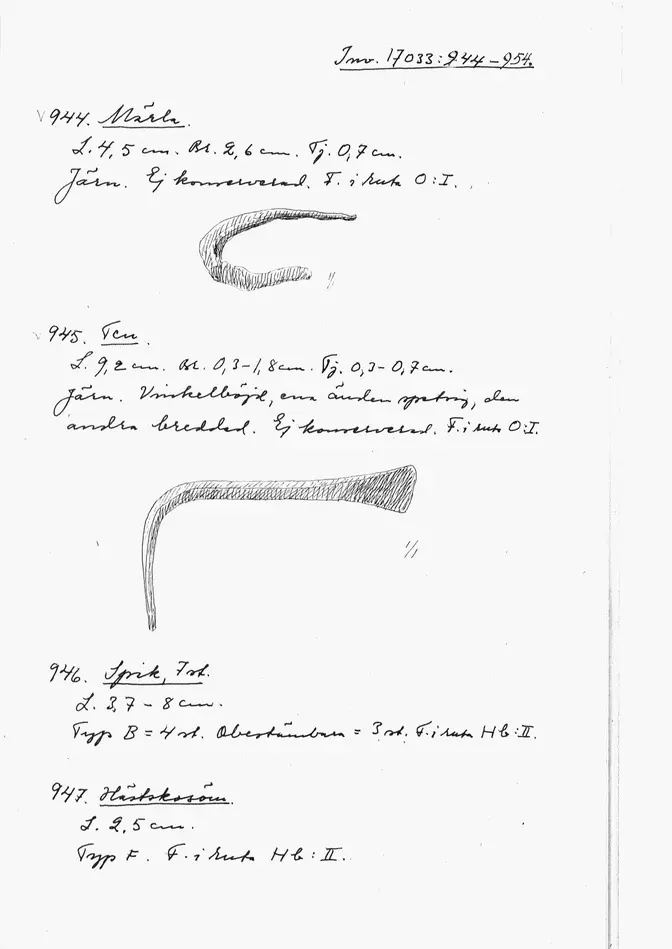 Inv. 17033:944-954.
V 944. Märla.
L. 4,5 cm. Br. 2,6 cm. Tj. 0,7 cm.
Järn. Ej konserverad. F. i ruta O:I.
1/1
V 945. Ten.
L. 9,2 cm. Br. 0,3-1,8 cm. Tj. 0,3-0,7 cm.
Järn. Vinkelböjd, ena änden spetsig, den
andra breddad. Ej konserverad. F. i ruta O:I.
1/1
946. Spik, 7 st.
L. 3,7 - 8 cm.
Typ B = 4 st. Obestämbara = 3 st. F. i ruta Hb:II.
947. Hästskosöm.
L. 2,5 cm.
Typ F. F. i ruta Hb:II.